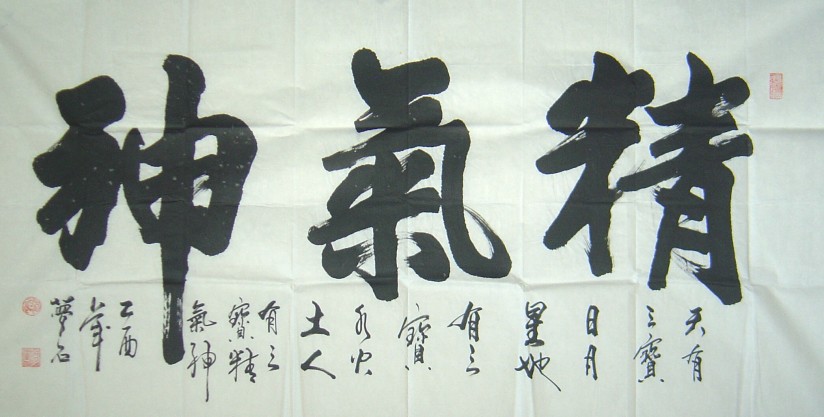 精氣神
天有
三寶
日月
星地
有三
寶
水火
土人
有三
寶精
氣神
乙酉
夢石